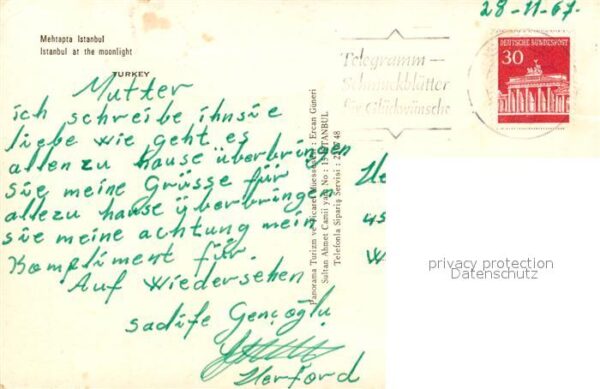 28-11-67.
Mehtapta Istanbul
Istanbul at the moonlight
TURKEY
Telegramm —
Schmuckblätter
für Glückwünsche
DEUTSCHE BUNDESPOST
30
Mutter
ich schreibe ihnsie
liebe wie geht es
allenzu hause überbringen
sie meine Grüsse für
allezu hause überbringen
sie meine achtung mein
Kompliment für.
Auf wiedersehen
sadife Gençoğlu
Herford
Panorama Turizm ve Ticaret Müessesesi : Ercan Güneri
Sultan Ahmet Camii yanı No : ISTANBUL
Telefonla Sipariş Servisi : 22 48
privacy protection
Datenschutz